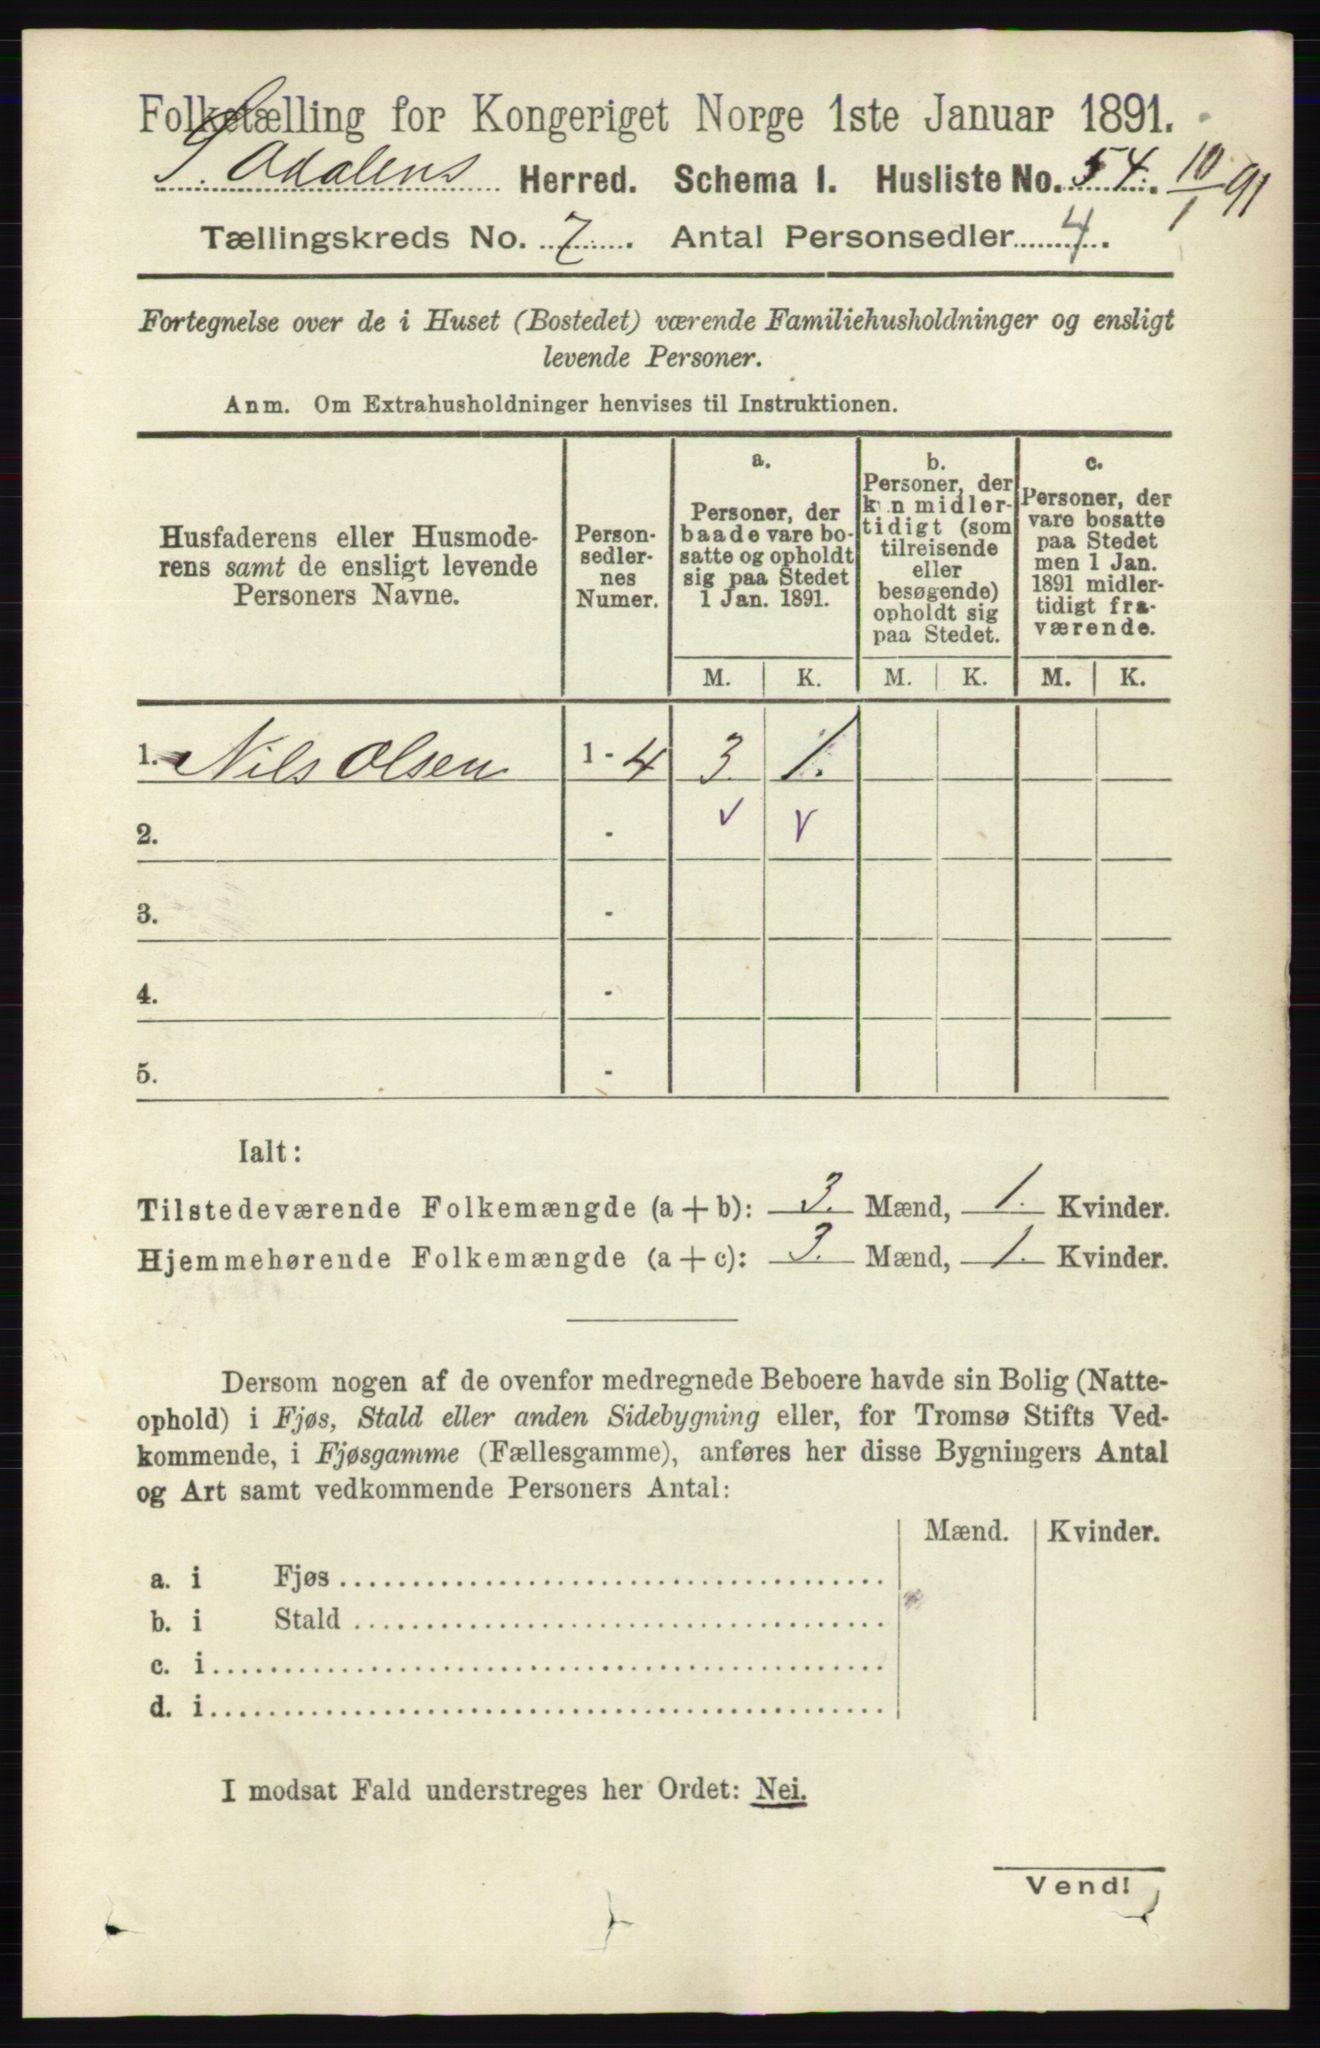 Folketælling for Kongeriget Norge 1ste Januar 1891.
S. Odalens Herred. Schema 1. Husliste No. 54. 10/1 91
Tællingskreds No. 7. Antal Personsedler 4.
Fortegnelse over de i Huset (Bostedet) værende Familiehusholdninger og ensligt
levende Personer.
Anm. Om Extrahusholdninger henvises til Instruktionen.
Husfaderens eller Husmode-
rens samt de ensligt levende
Personers Navne.
Person-
sedler-
nes
Numer.
a.
Personer, der
baade vare bo-
satte og opholdt
sig paa Stedet
1 Jan. 1891.
b.
Personer, der
kun midler-
tidigt (som
tilreisende
eller
besøgende)
opholdt sig
paa Stedet.
c.
Personer, der
vare bosatte
paa Stedet
men 1 Jan.
1891 midler-
tidigt fra-
værende.
M. K. M. K. M. K.
1. Nils Olsen 1 - 4 3. 1.
2. - v v
3. -
4. -
5. -
Ialt:
Tilstedeværende Folkemængde (a + b): 3. Mænd, 1. Kvinder.
Hjemmehørende Folkemængde (a + c): 3. Mænd, 1. Kvinder.
Dersom nogen af de ovenfor medregnede Beboere havde sin Bolig (Natte-
ophold) i Fjøs, Stald eller anden Sidebygning eller, for Tromsø Stifts Ved-
kommende, i Fjøsgamme (Fællesgamme), anføres her disse Bygningers Antal
og Art samt vedkommende Personers Antal:
Mænd. Kvinder.
a. i Fjøs
b. i Stald
c. i
d. i
I modsat Fald understreges her Ordet: Nei.
Vend!